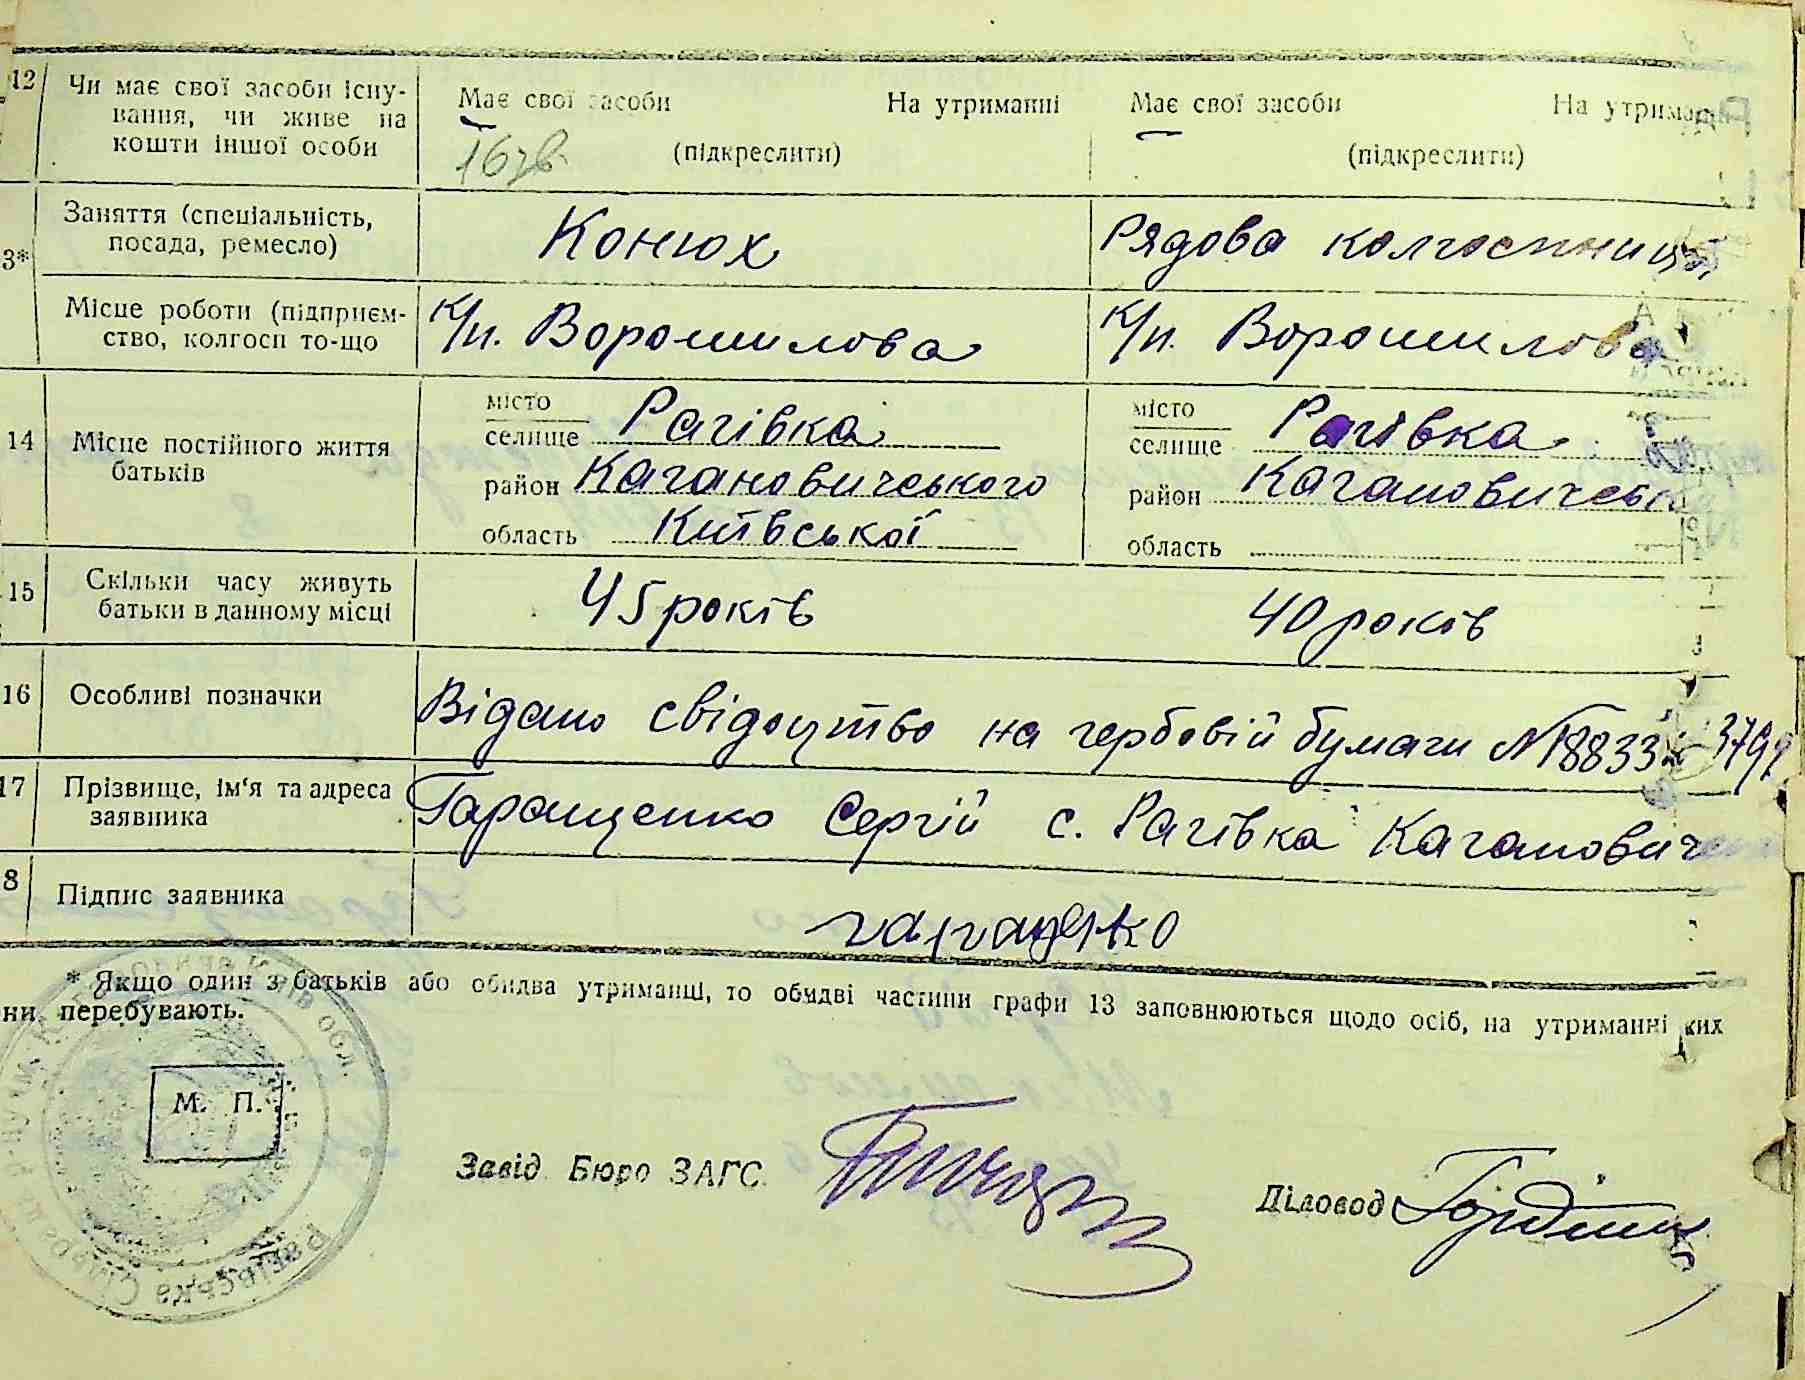 12 Чи має свої засоби існу-
вання, чи живе на
кошти іншої особи
Має свої засоби На утриманні
(підкреслити)
Має свої засоби На утриманні
(підкреслити)
3* Заняття (спеціальність,
посада, ремесло)
Конюх
Рядова колгоспниця
Місце роботи (підприєм-
ство, колгосп то-що
К/п. Ворошилова
К/п. Ворошилова
14 Місце постійного життя
батьків
місто
селище Рагівка
район Кагановичського
область Київської
місто
селище Рагівка
район Кагановичськ
область
15 Скільки часу живуть
батьки в данному місці
45 років
40 років
16 Особливі позначки
Відано свідоцтво на гербовій бумаги №18833
17 Прізвище, ім'я та адреса
заявника
Гаращенко Сергій с. Рагівка Каганович
8 Підпис заявника
гаращенко
* Якщо один з батьків або обидва утриманці, то обидві частини графи 13 заповнюються щодо осіб, на утриманні ких
ни перебувають.
М. П.
Завід. Бюро ЗАГС
Діловод